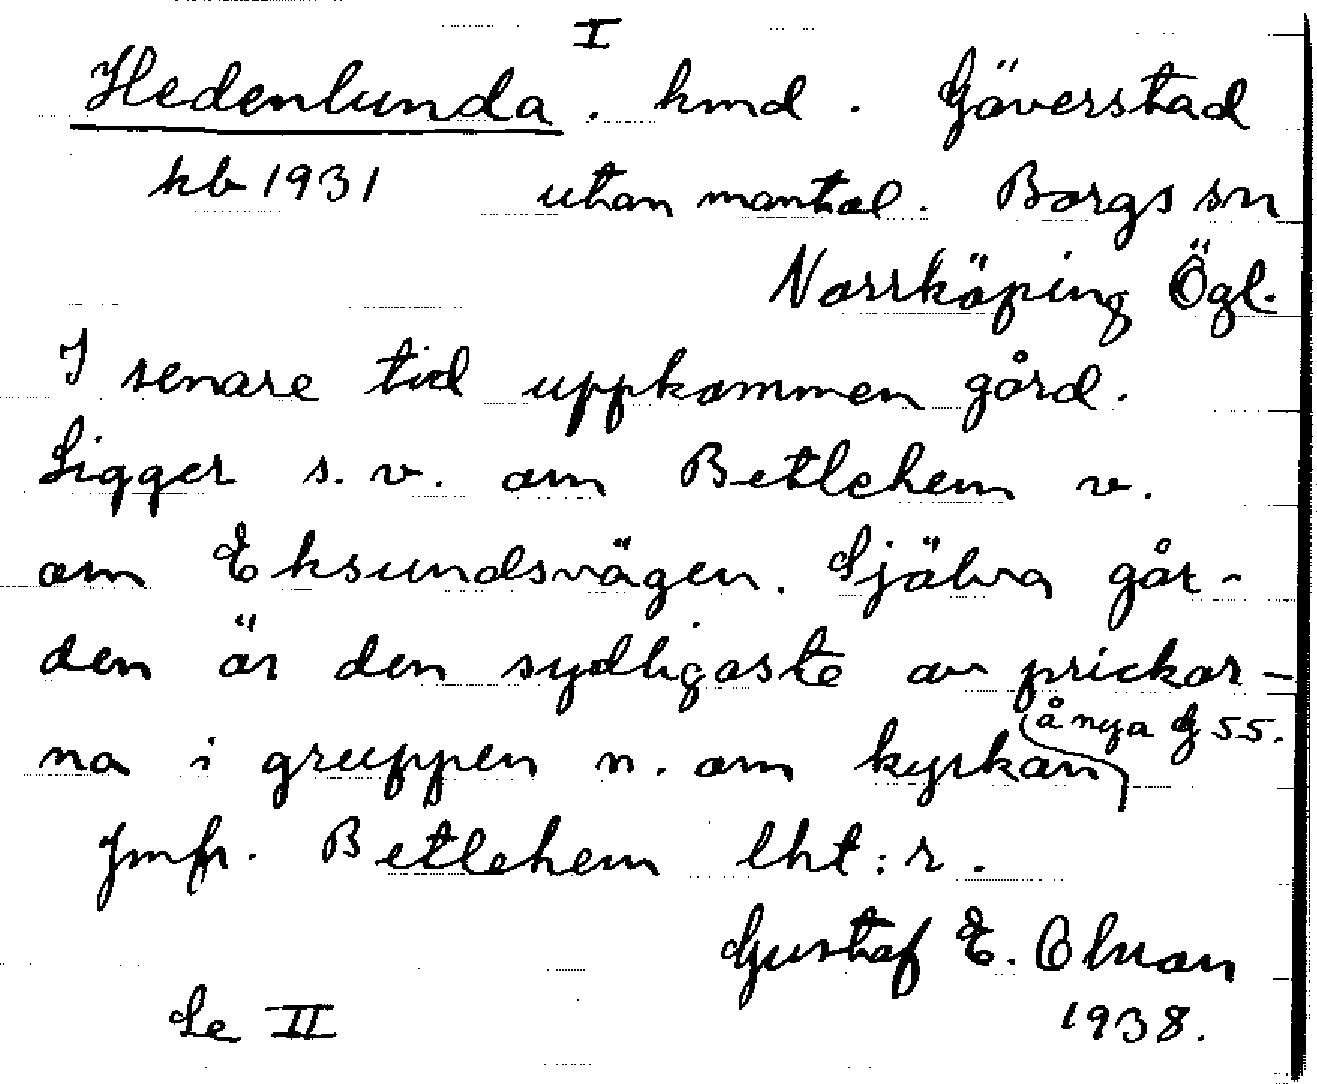 I
Hedenlunda. hmd. Göverstad
kb 1931 utan mantal. Borgs sn
Norrköping Ögl.
I senare tid uppkommen gård.
Ligger s.v. om Betlehem v.
om Eksundsvägen. Själva går-
den är den sydligaste av prickar-
na i gruppen n. om kyrkan å nya 55.
Jmfr. Betlehem lht:r.
Gustaf E. Olson
Se II 1938.